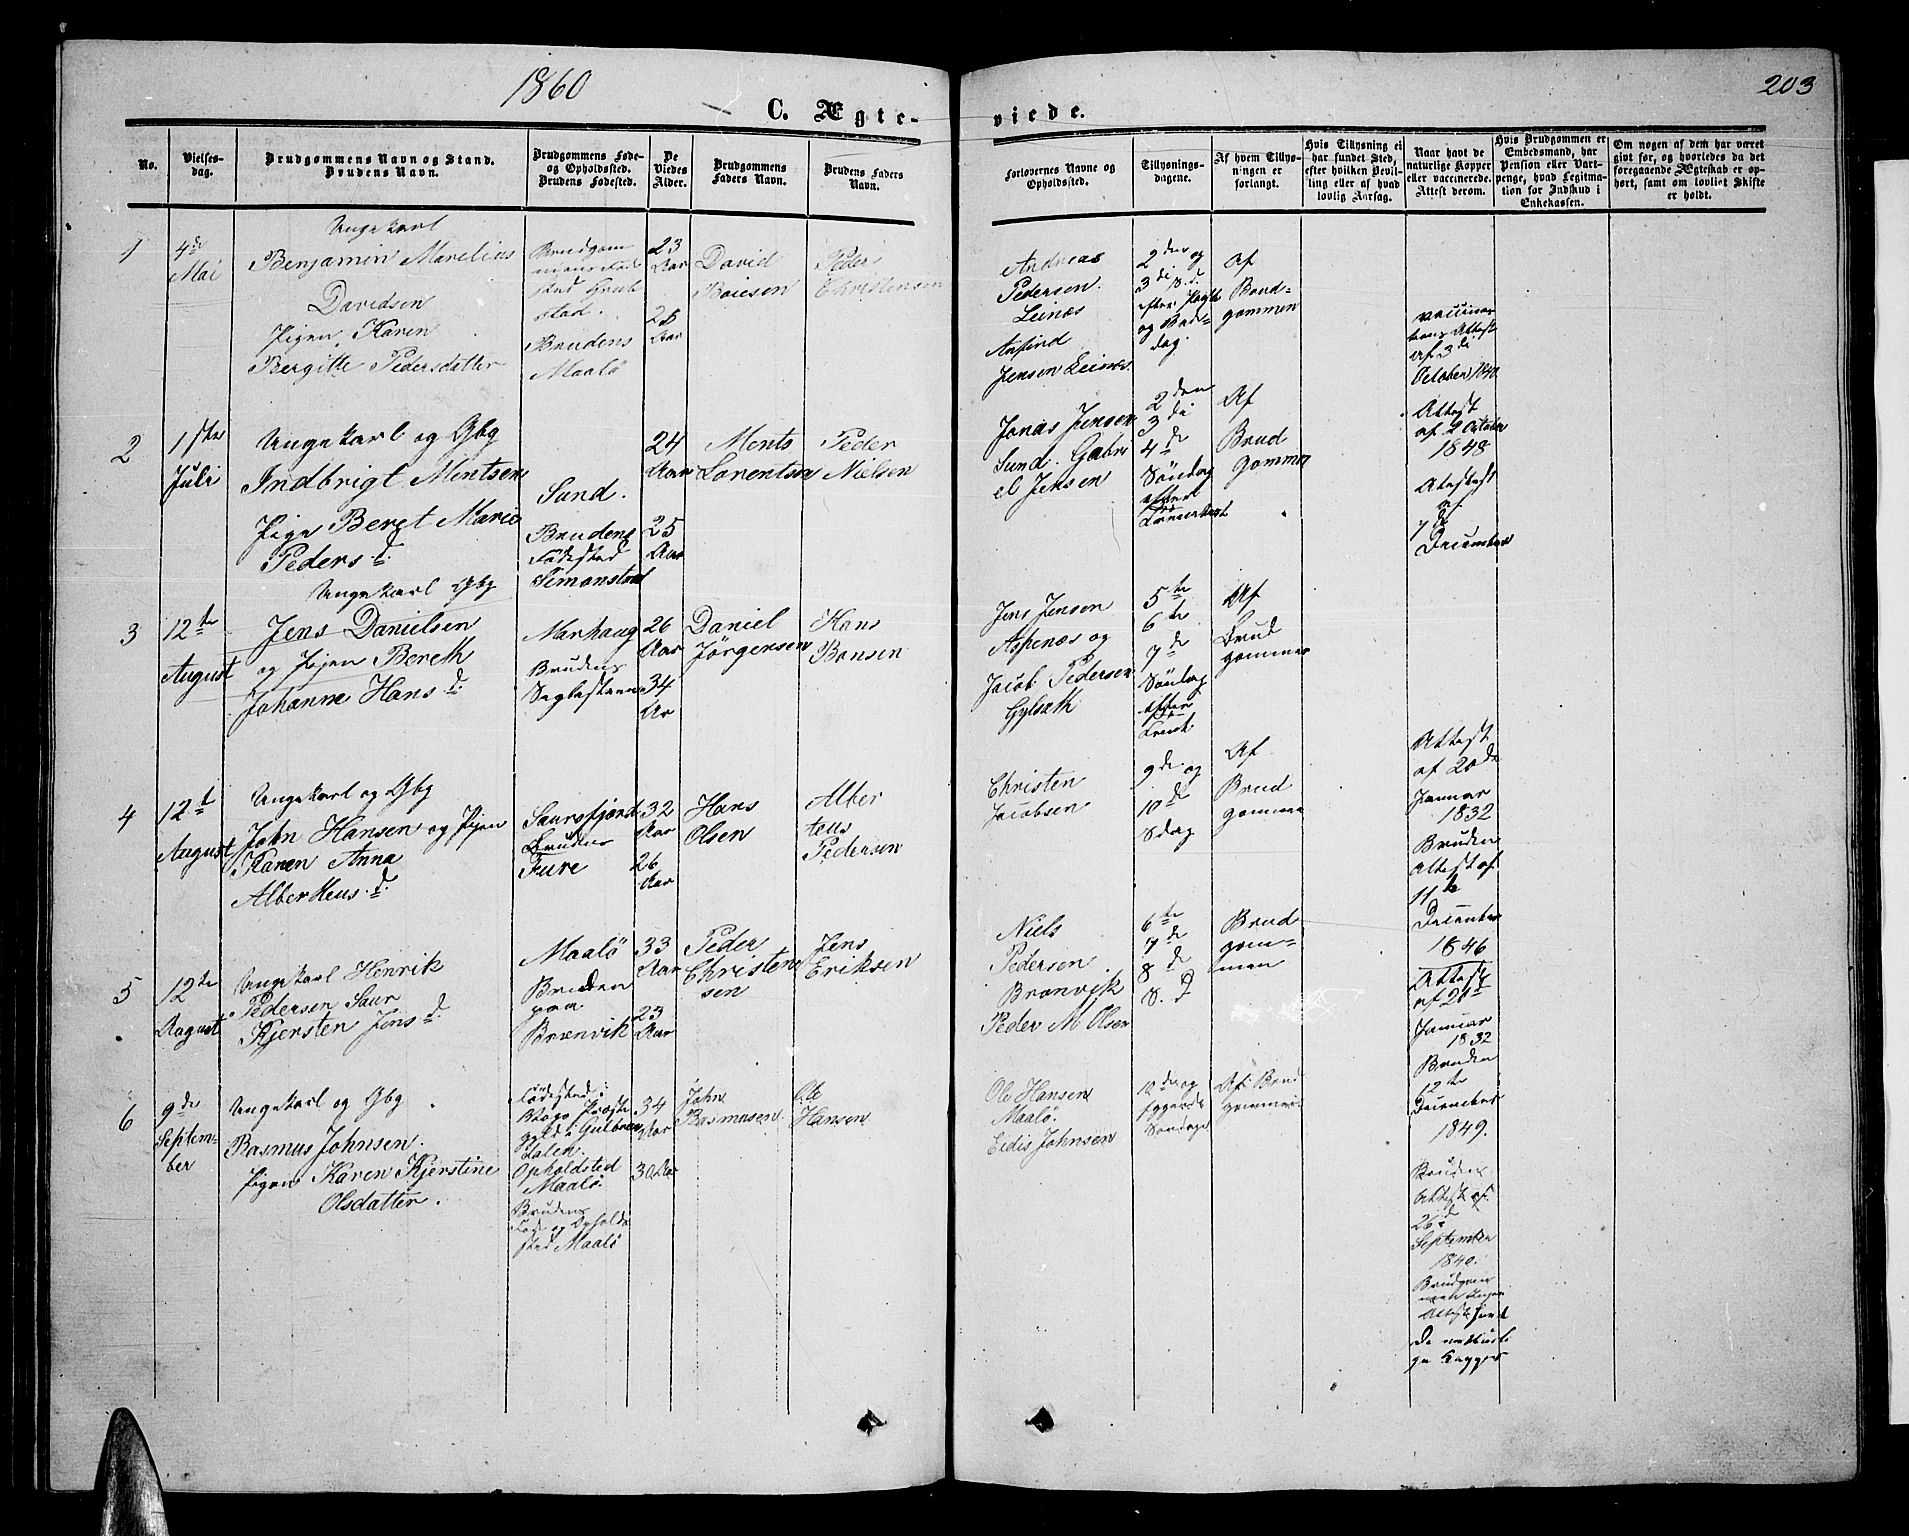 1860
203
C. Ægte-
viede.
No.
Vielses-
dag.
Brudgommens Navn og Stand.
Brudens Navn.
Brudgommens Føde-
og Opholdsted.
Brudens Fødested.
De
Viedes
Alder.
Brudgommens
Faders Navn.
Brudens Faders
Navn.
Forlovernes Navne og
Opholdsted.
Tillysnings-
dagene.
Af hvem Tillys-
ningen er
forlangt.
Hvis Tillysning ei
har fundet Sted,
efter hvilken Bevil-
ling eller af hvad
lovlig Aarsag.
Naar havt de
naturlige Kopper
eller vaccinerede.
Attest derom.
Hvis Brudgommen er
Embedsmand, har
Pension eller Vart-
penge, hvad Legitma-
tion for Indskud i
Enkekassen.
Om nogen af dem har været
givt før, og hvorledes da det
foregaaende Ægteskab er op-
hørt, samt om lovligt Skifte
er holdt.
1
4de
Mai
Ungekarl
Benjamin Marelius
Davidsen
Pigen Karen
Bergitte Pedersdatter
Brudgom
stad.
Brudens
Maalö
23
Aar
Aar
David
Boiesen
Peder
Christensen
Andreas
Pedersen
Leinæs
Anfind
Jensen Leinæs.
2den og
3di S.d.
og Bede-
dag.
Af
Brud-
gommen
Attest
af 3di
October 1840
2
1ste
Juli
Ungekarl og Gbg
Indbrigt Mentsen
Pige Beret Marie
Peders d.
Sund.
Brudens
Födested
Simonstad
24
Aar
25
Aar
Ments
Lorentsen
Peder
Nielsen
Jonas Jensen
Sund. Gabri
el Jensen
2den
3di
4de
Söndag
efter
Af
Brud
gommen
Attest
af 2 October
1848
Attest
af
7de
December
3
12te
August
Ungekarl Gbg
Jens Danielsen
og Pigen Bereth
Johanne Hans d.
Marhaug
Brudens
Seglesteen
26
Aar
34
Aar
Daniel
Jörgensen
Hans
Bonsen
Jens Jensen
Aspenæs og
Jacob Pedersen
Gylseth
5te
6te
7de
Söndag
efter
Af
Brud
gommen
4
12t
August
Ungekarl og Gbg
John Hansen og Pigen
Karen Anna
Albertteus. d.
Saursfjord
Brudens
Fure
32
Aar
26
Aar
Hans
Olsen
Alber
teus
Pedersen
Christen
Jacobsen
9de og
10de
Sdag
Af
Brud
gommen
Attest
af 20de
Januar
1832
Bruden
Attest af
11te
December
1846
5
12te
August
Ungekarl Henrik
Pedersen Saur
Kjersten Jens d.
Maalö
Bruden
paa
Brænvik
33
Aar
23
Aar
Peder
Christen
sen
Jens
Eriksen
Niels
Pedersen
Brænvik
Peder M. Olsen
6te
7de
8de
S. d
Brud
gom-
men
Attest
af 20de
Januar
1832
Bruden
12te
December
1849.
6
9de
Septem-
ber
Ungekarl og Gbg
Rasmus Johnsen.
Pigen Karen Kjerstine
Olsdatter.
Födested i
Vaage Præste
gjeld i Gulbran
dalen.
Opholdsted
Maalö.
Brudens
Föde og Opholds
sted Maalö
34
Aar
30 Aar
John
Rasmusen
Ole
Hansen
Ole Hansen
Maalö.
Eidis Johnsen
10de og
Söndage
Af Brud
gommen
Bruden
Attest af
26de
September
1840.